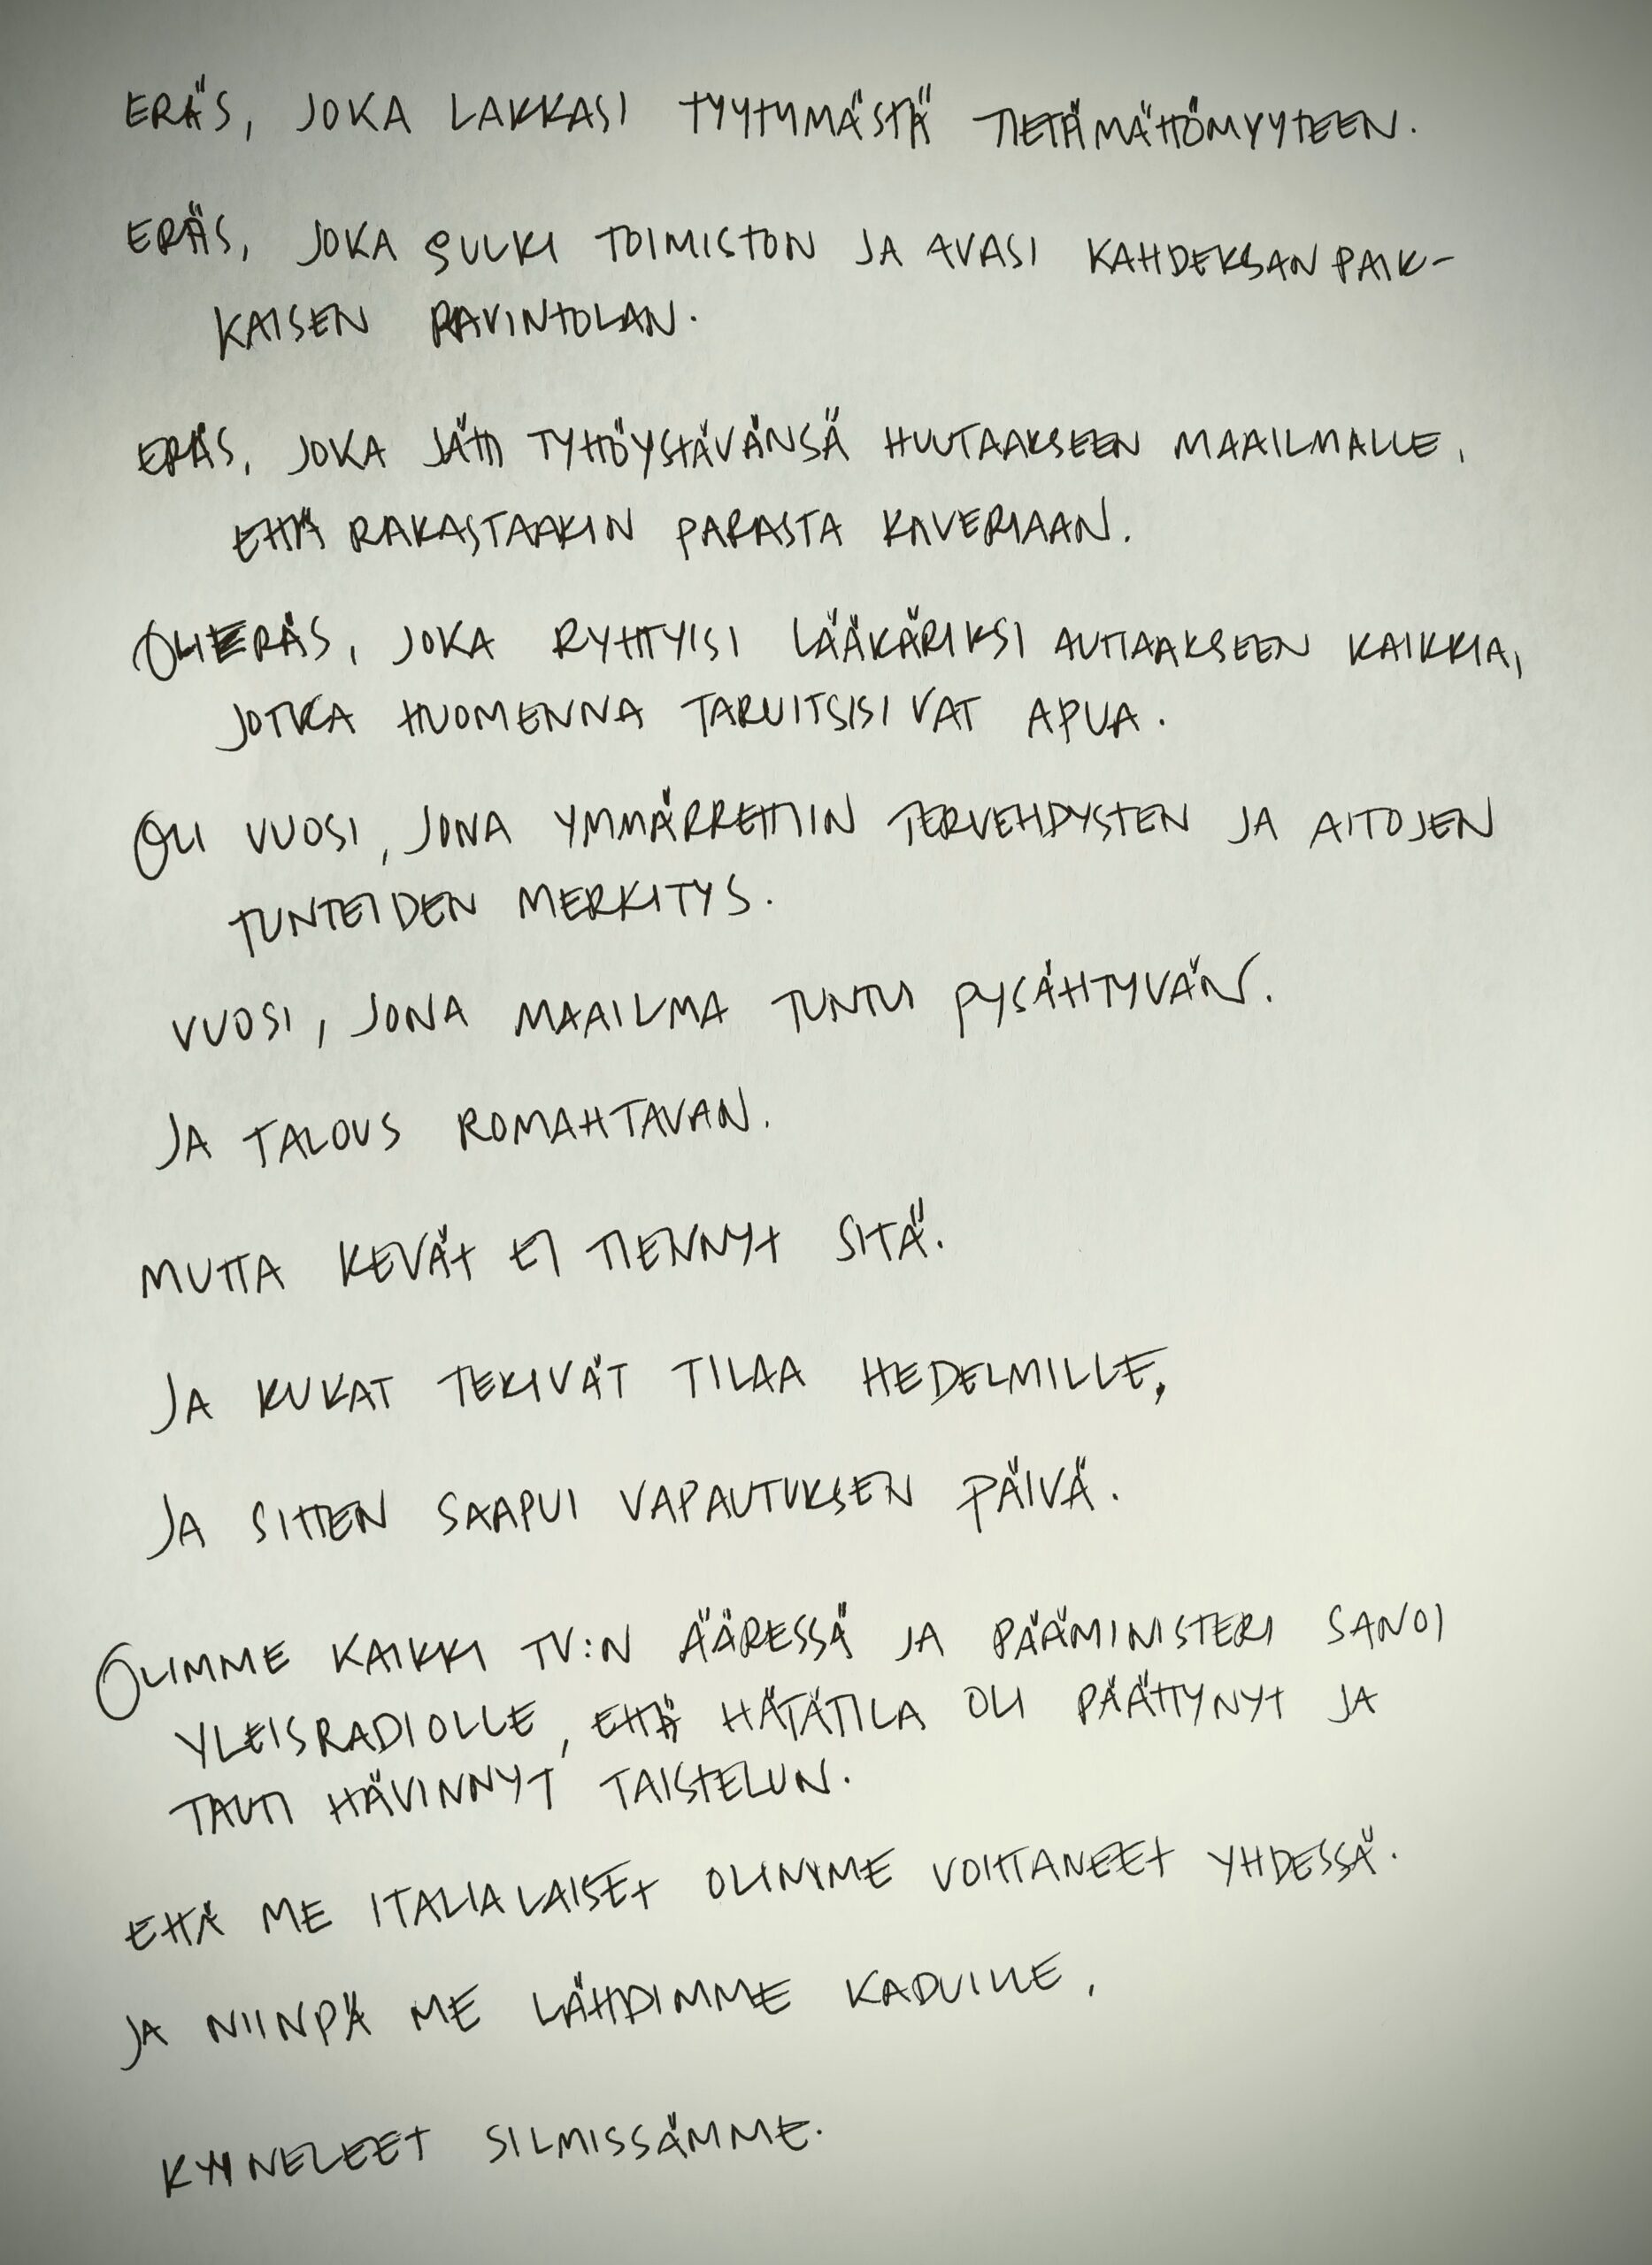 ERÄS, JOKA LAKKASI TYYTYMÄSTÄ TIETÄMÄTTÖMYYTEEN.
ERÄS, JOKA SULKI TOIMISTON JA AVASI KAHDEKSANPAIK-
KAISEN RAVINTOLAN.
ERÄS, JOKA JÄTTI TYTTÖYSTÄVÄNSÄ HUUTAAKSEEN MAAILMALLE,
ETTÄ RAKASTAAKIN PARASTA KAVERIAAN.
OLI ERÄS, JOKA RYHTYISI LÄÄKÄRIKSI AUTTAAKSEEN KAIKKIA,
JOTKA HUOMENNA TARVITSISIVAT APUA.
OLI VUOSI, JONA YMMÄRRETTIIN TERVEHDYSTEN JA AITOJEN
TUNTEIDEN MERKITYS.
VUOSI, JONA MAAILMA TUNTUI PYSÄHTYVÄN.
JA TALOUS ROMAHTAVAN.
MUTTA KEVÄT EI TIENNYT SITÄ.
JA KUKAT TEKIVÄT TILAA HEDELMILLE,
JA SITTEN SAAPUI VAPAUTUKSEN PÄIVÄ.
OLIMME KAIKKI TV:N ÄÄRESSÄ JA PÄÄMINISTERI SANOI
YLEISRADIOLLE, ETTÄ HÄTÄTILA OLI PÄÄTTYNYT JA
TAUTI HÄVINNYT TAISTELUN.
ETTÄ ME ITALIALAISET OLIMME VOITTANEET YHDESSÄ.
JA NIINPÄ ME LÄHDIMME KADUILLE,
KYYNELEET SILMISSÄMME.